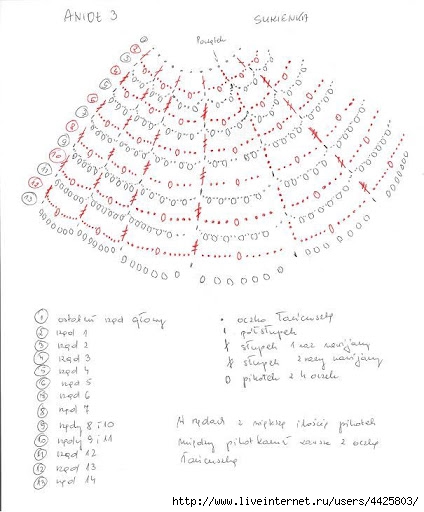 ANIOŁ 3
SUKIENKA
Początek
1 ostatni rząd głowy
2 rząd 1
3 rząd 2
4 rząd 3
5 rząd 4
6 rząd 5
7 rząd 6
8 rząd 7
9 rzędy 8 i 10
10 rzędy 9 i 11
11 rząd 12
12 rząd 13
13 rząd 14
• oczko łańcuszka
półsłupek
słupek 1 raz nawijany
słupek 2 razy nawijany
0 pikotek z 4 oczek
W rzędach z większą ilością pikotek
między pikotkami zawsze 2 oczka
łańcuszka
http://www.liveinternet.ru/users/4425803/